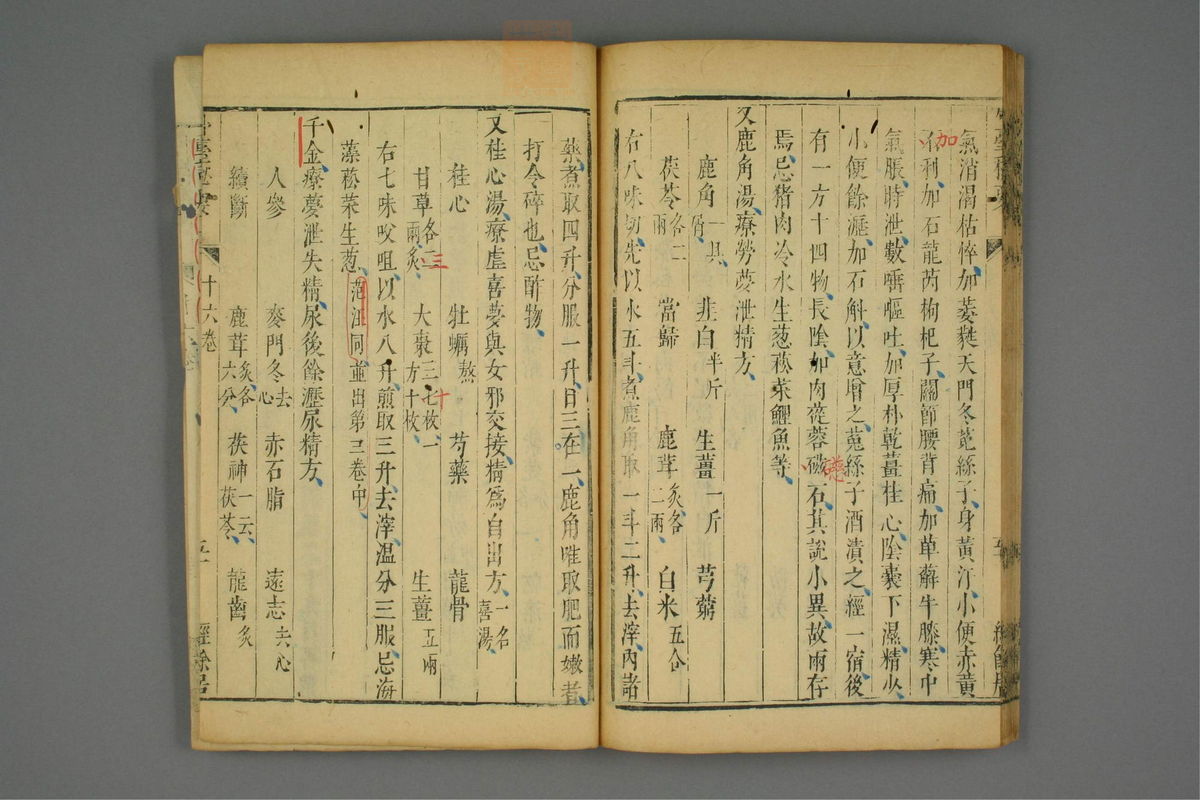 氣消渴枯悴加菱蕤天門冬菟絲子身黃汗小便赤黃
不利加石龍芮枸杞子關節腰背痛加萆薢牛膝寒中
加
氣脹時泄數嚥嘔吐加厚朴乾薑桂心陰囊下濕精少
小便餘瀝加石斛以意增之菟絲子酒漬之經一宿後
有一方十四物長陰加肉蓯蓉磁石其說小異故兩存
礠
焉忌猪肉冷水生葱菘菜鯉魚等
又鹿角湯療勞夢泄精方
鹿角一具屑 韮白半斤 生薑一斤 芎藭
茯苓各二兩 當歸 鹿茸炙各二兩 白米五合
右八味切先以水五斗煮鹿角取一斗二升去滓內諸
藥煮取四升分服一升日三在一鹿角唯取肥而嫩者
打令碎也忌酢物
又桂心湯療虛喜夢與女邪交接精爲自出方一名喜湯
桂心 牡蠣熬 芍藥 龍骨
甘草各二兩炙 大棗三七枚一方十枚 生薑五兩
三 十
右七味㕮咀以水八升煎取三升去滓溫分三服忌海
藻菘菜生葱范汪同並出第三卷中
千金療夢泄失精尿後餘瀝尿精方
人參 麥門冬去心 赤石脂 遠志去心
續斷 鹿茸炙各六分 茯神一云茯苓 龍齒炙
十六卷
經餘居